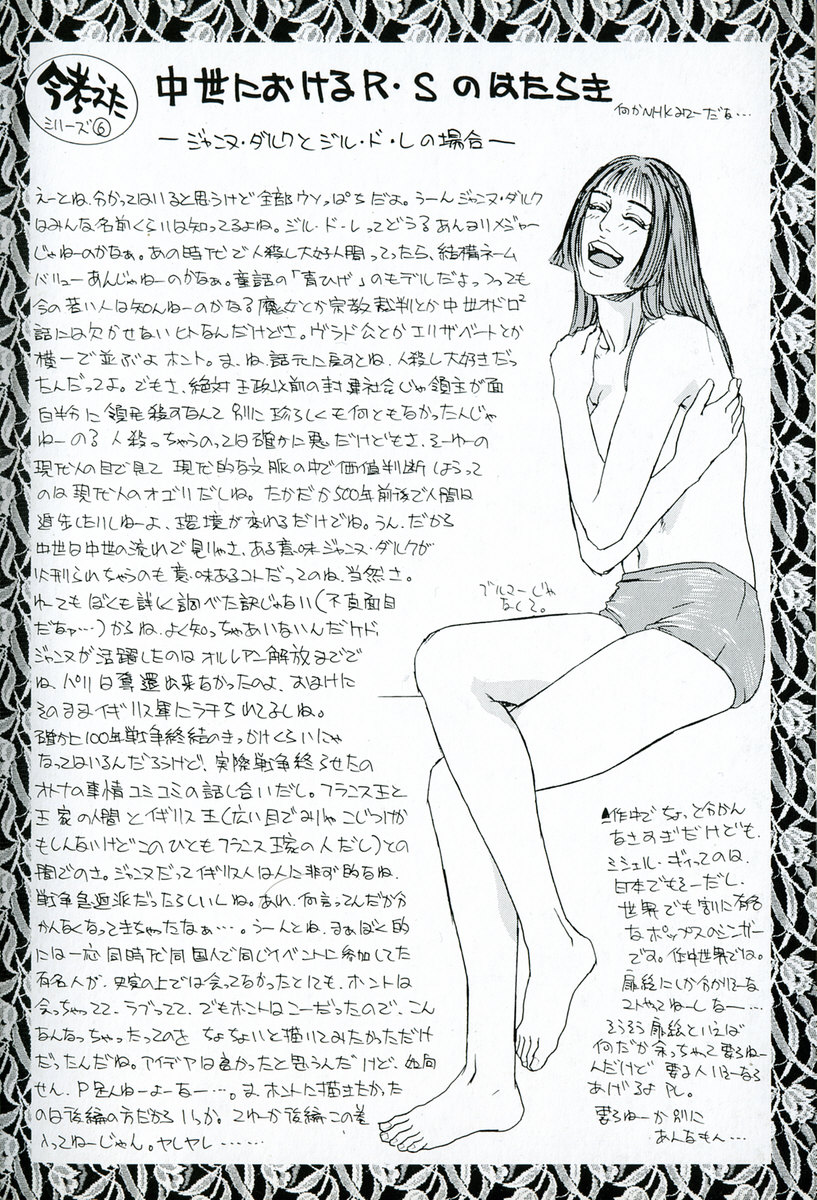 今考えた
シリーズ⑥
中世におけるR・Sのはたらき
何かNHKみてーだな…
―ジャンヌ・ダルクとジル・ド・レの場合―
えーとね、分かってはいると思うけど全部ウソっぱちだよ。うーんジャンヌ・ダルク
はみんな名前くらいは知ってるよね。ジル・ド・レってどうなあんまりメジャー
じゃねーのかなぁ。あの時代で人殺し大好人間ってったら、結構ネーム
バリューあんじゃねーのかなぁ。童話の「青ひげ」のモデルだよっつっても
今の若い人は知んねーのかなる魔女とか宗教裁判とか中世オドロ²
話には欠かせないヒトなんだけどさ。ヴラド公とかエリザベートとか
横一で並ぶよホント。ま、ね、話元に戻すとね、人殺し大好きだっ
たんだってよ。でもさ、絶対王政以前の封建社会じゃ領主が面
白半分に領民殺すなんて別に珍らしくも何ともなかったんじゃ
ねーのる人殺っちゃうのっては確かに悪だけどもさ、そーゆーの
現代人の目で見て現代的な文脈の中で価値判断しようって
のは現代人のオゴリだしね。たかだか500年前後で人間は
進歩したりしねーよ、環境が変わるだけでね。うん、だから
中世は中世の流れで見りゃさ、ある意味ジャンヌ・ダルクが
火刑られちゃうのも意味あるコトだってのね、当然さ。
わーてもぼくも詳しく調べた訳じゃない(不真面目
だなァ…)からね、よく知っちゃあいないんだケド
ジャンヌが活躍したのはオルレアン解放までで
ね、パリは奪還出来なかったのよ、おまけに
そのままイギリス軍にラチられてるしね。
確かに100年戦争終結のきっかけくらいにゃ
なってはいるんだろうけど、実際戦争終らせたの
オトナの事情コミコミの話し合いだし。フランス王と
王家の人間とイギリス王(広い目でみりゃこじつけか
もしんないけどこのひともフランス王家の人だし)との
間でのさ。ジャンヌだってイギリス人は人に非ず的なね、
戦争急進派だったらしいしね。あれ、何言ってんだか分
かんなくなってきちゃったなぁ…。うーんとね、まぁぼく的
には一応同時代同国人で同じイベントに参加してた
有名人が、史実の上では会ってなかったとしても、ホントは
会っちゃってて、ラブってて、でもホントはこーだったので、こん
なんなっちゃったってのを ちょちょいと描いてみたかっただけ
だったんだね。アイデアは良かったと思うんだけど、如何
せん、P足んねーよーなー…。ま、ホントに描きたかった
のは後編の方だからいっか。てゆーか後編この差
入ってねーじゃん。ヤレヤレ……
ブルマーじゃ
なくて。
▲作中でちょっと分かん
なさすぎだけども、
ミシェル・ギイってのは、
日本でもそーだし、
世界でも割に有名
なポップスのシンガー
です。作中世界では。
扉絵にしか分かりそーな
コトやってねーしなー…
そうそう扉絵といえば
何だか余っちゃって要らねー
んだけど 要る人いるーなら
あげるよPL。
要らねーか別に
あんなもん…